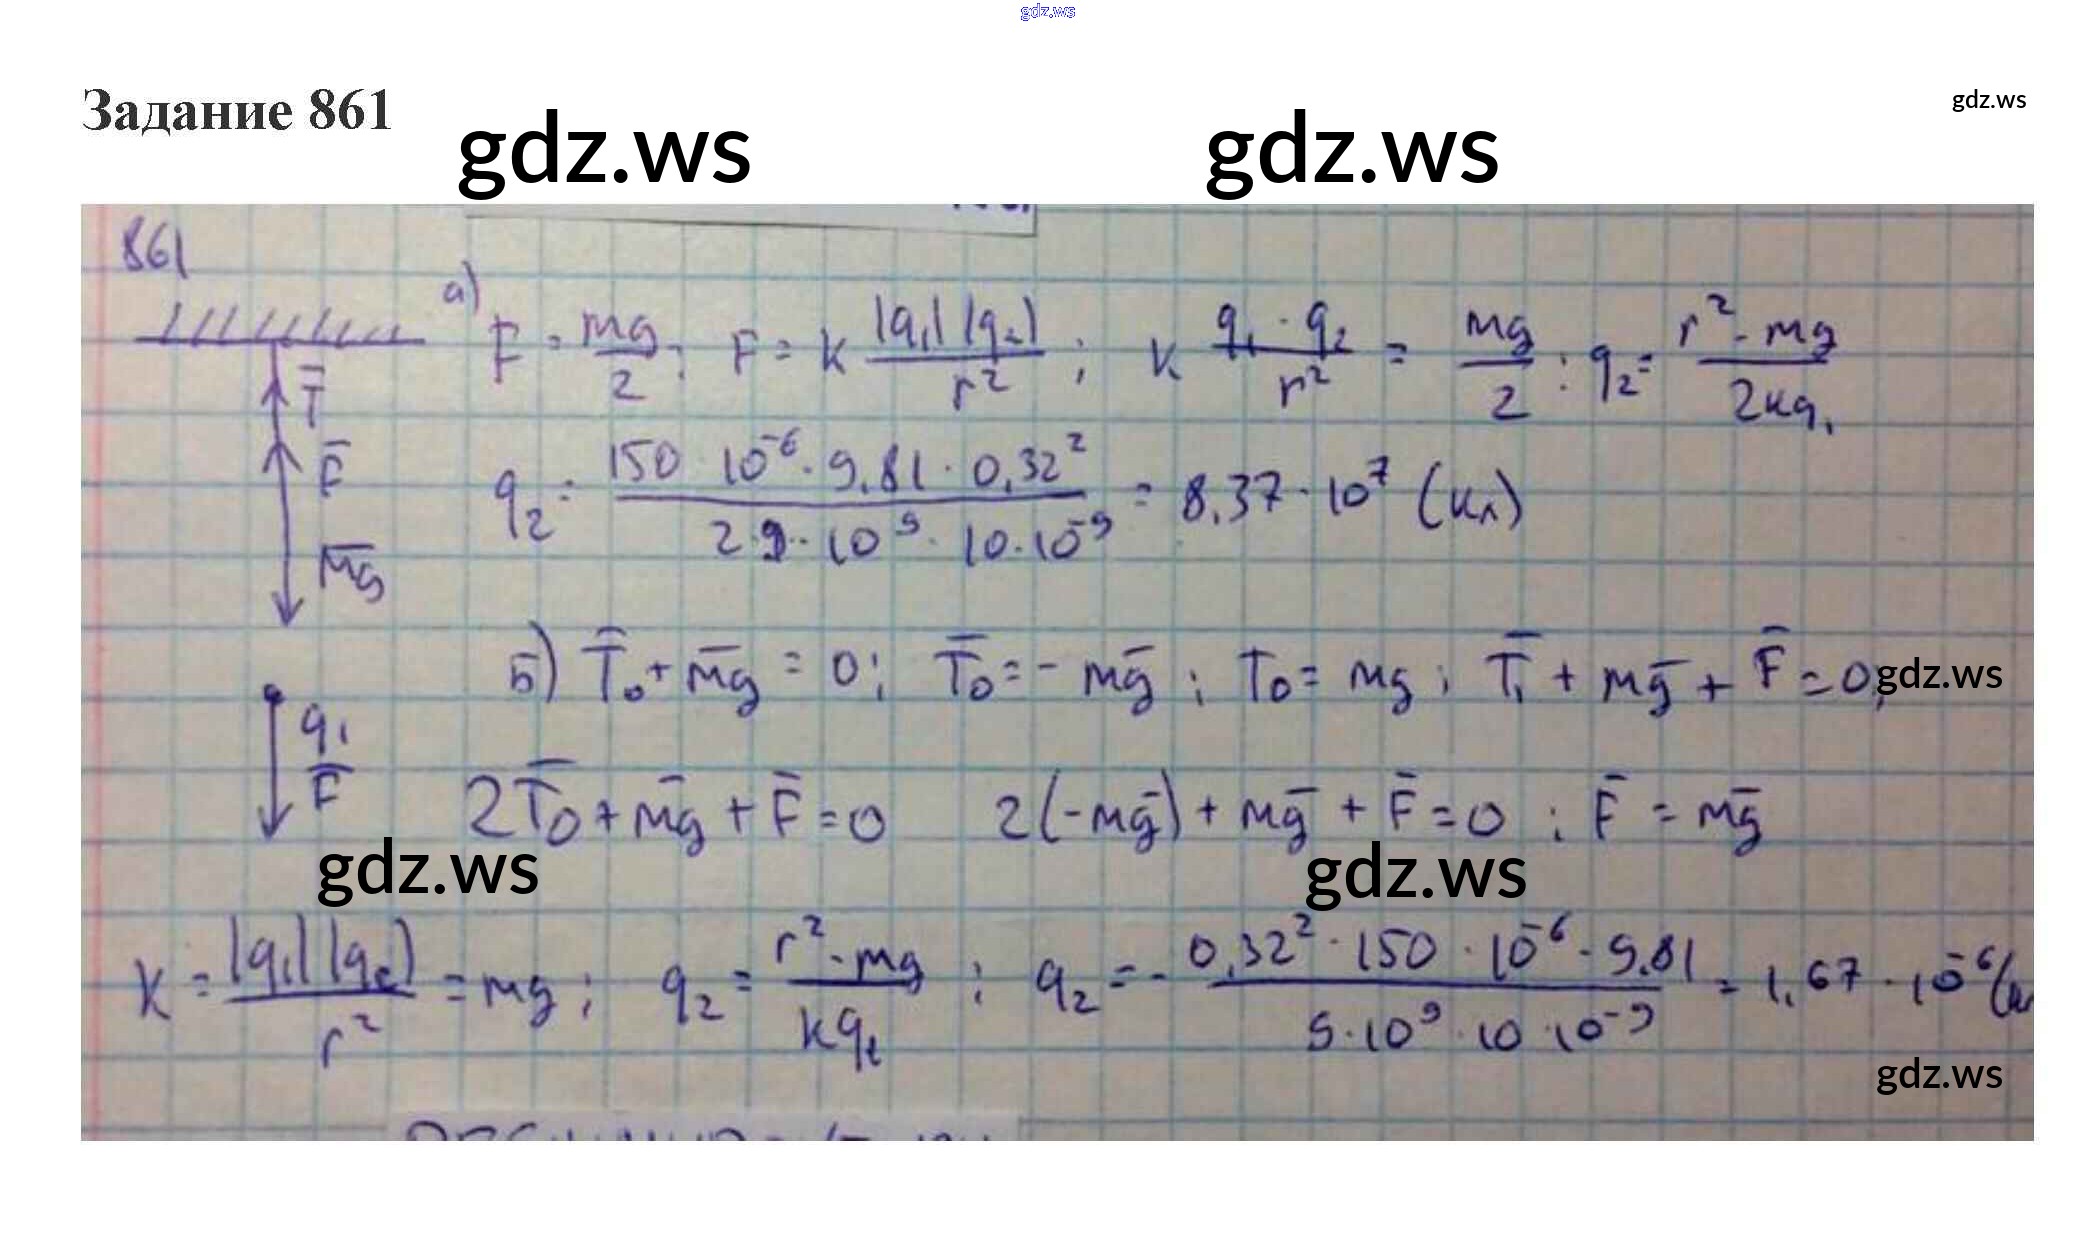 gdz.ws
Задание 861
gdz.ws
gdz.ws gdz.ws
861
а) F = mg/2 ; F = k |q₁| |q₂| / r² ; k q₁ · q₂ / r² = mg/2 ; q₂ = r² · mg / 2kq₁
T̄
F̄
q₂ = 150 · 10⁻⁶ · 9,81 · 0,32² / 2 · 9 · 10⁹ · 10 · 10⁻⁹ = 8,37 · 10⁷ (Кл)
m̄g
Б) T̄₀ + m̄g = 0 ; T̄₀ = - mḡ ; T₀ = mg ; T̄₁ + mḡ + F̄ = 0 ;
gdz.ws
q₁
F̄
2T̄₀ + m̄g + F̄ = 0 2(-mḡ) + mḡ + F̄ = 0 ; F̄ = mḡ
gdz.ws gdz.ws
K = |q₁| |q₂| / r² = mg ; q₂ = r² · mg / kq₁ ; q₂ = - 0,32² · 150 · 10⁻⁶ · 9,81 / 9 · 10⁹ · 10 · 10⁻⁹ = 1,67 · 10⁻⁶ (
gdz.ws